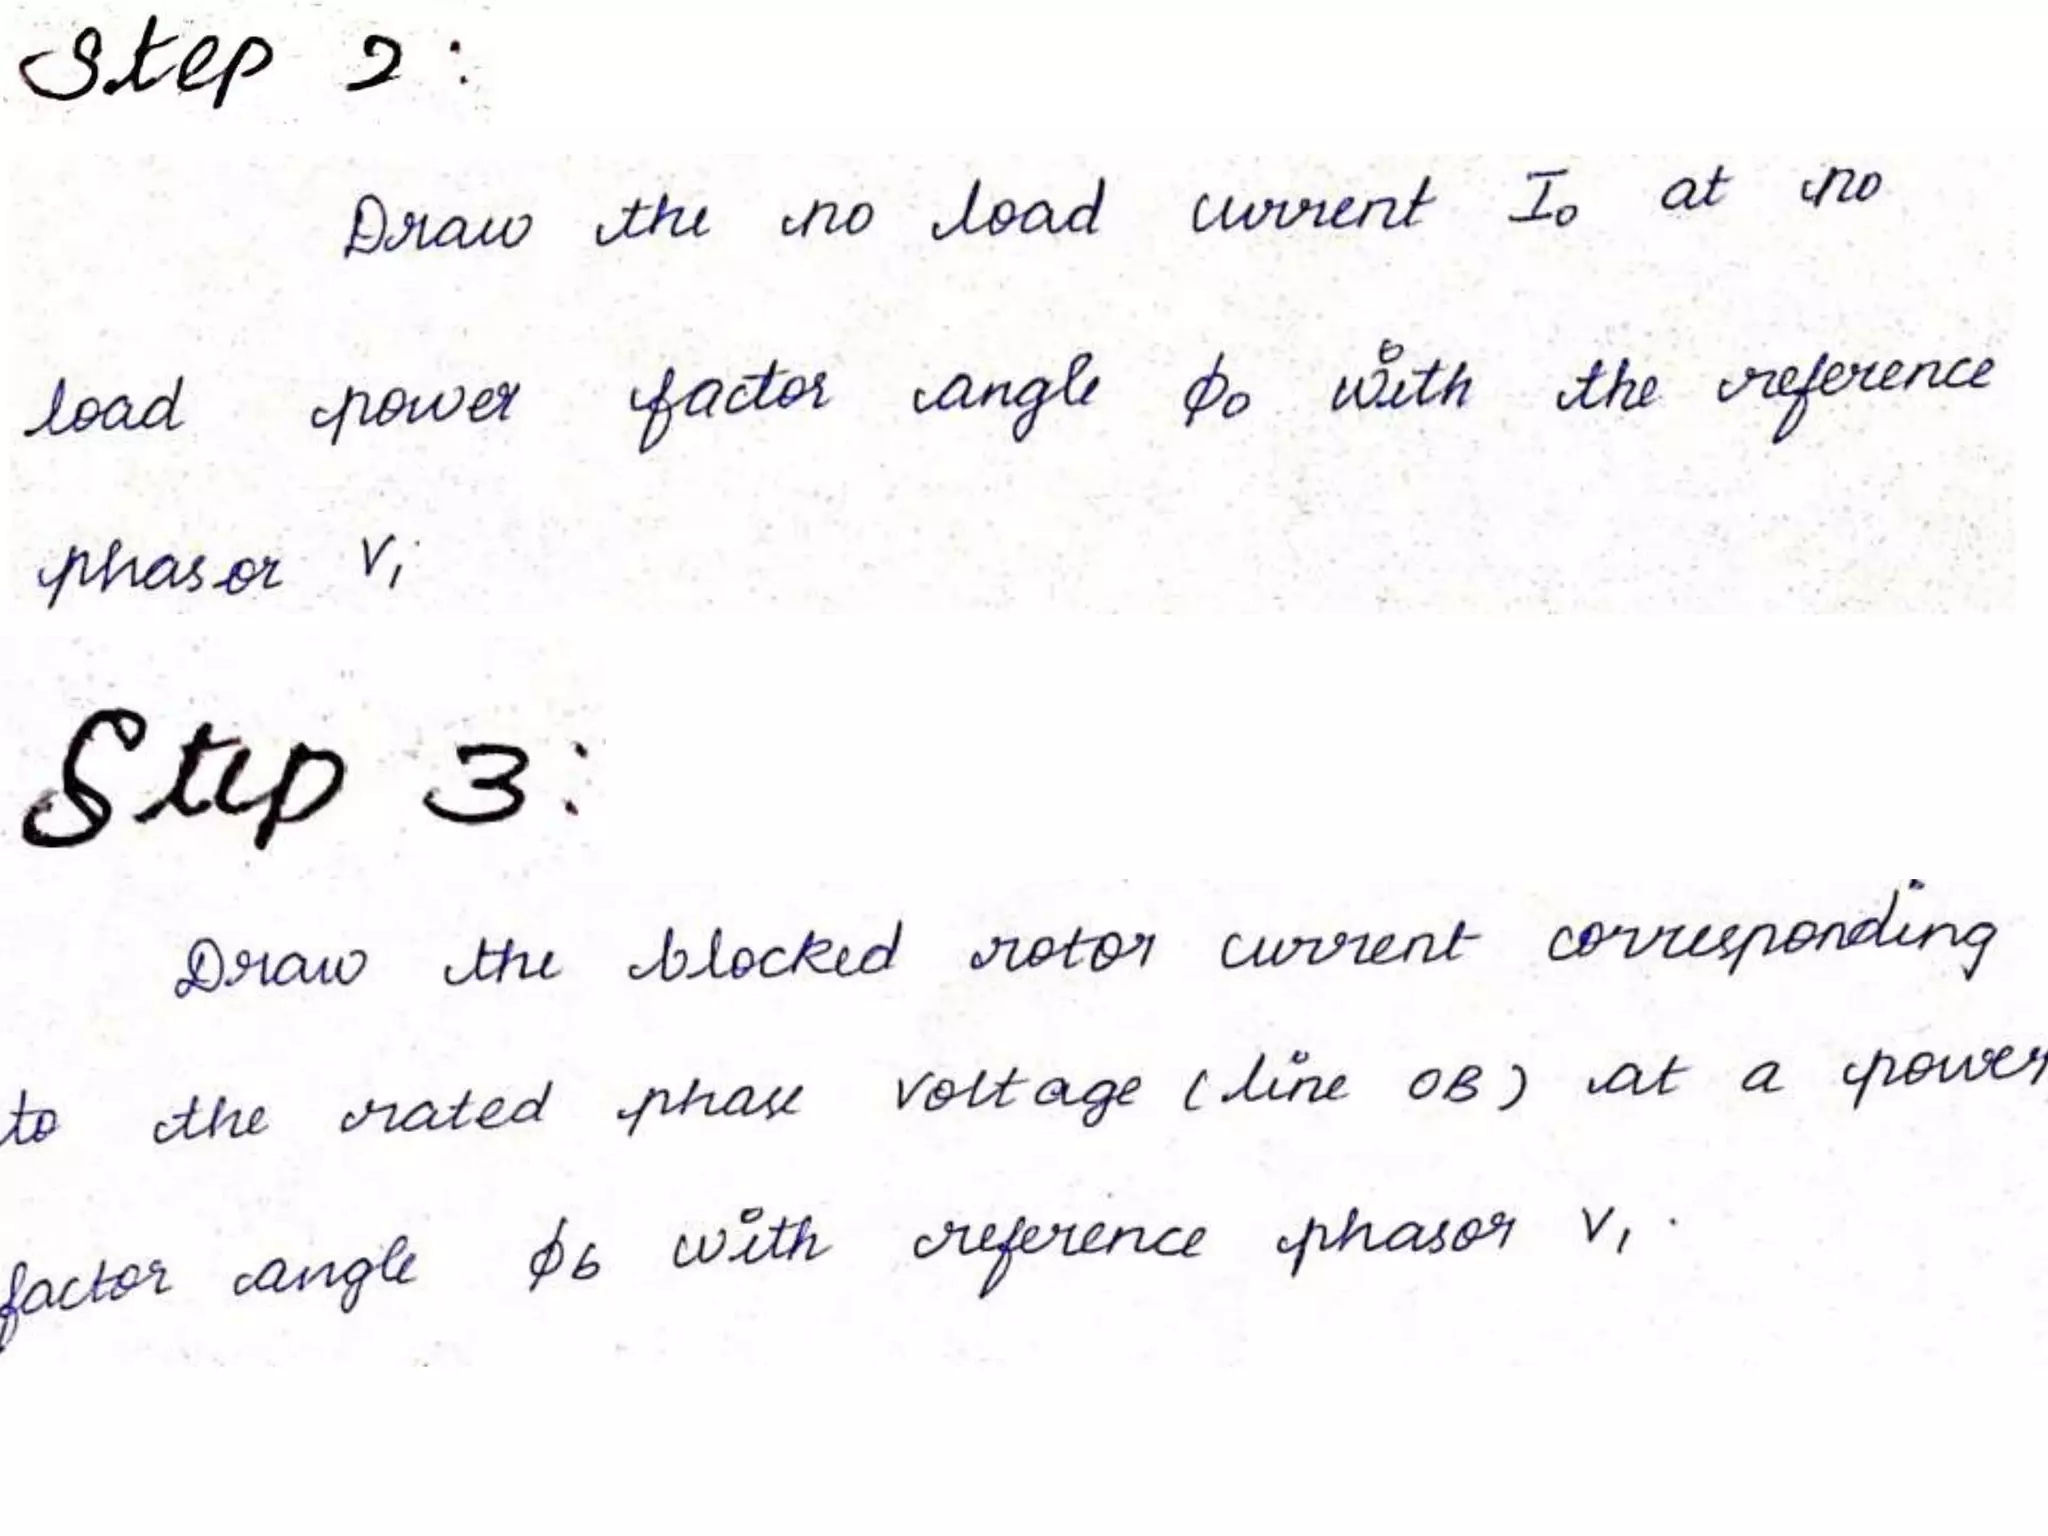 Step 2:
Draw the no load current I₀ at no
load power factor angle ϕ₀ with the reference
phasor V₁
Step 3:
Draw the blocked rotor current corresponding
to the rated phase voltage (line OB) at a power
factor angle ϕb with reference phasor V₁.